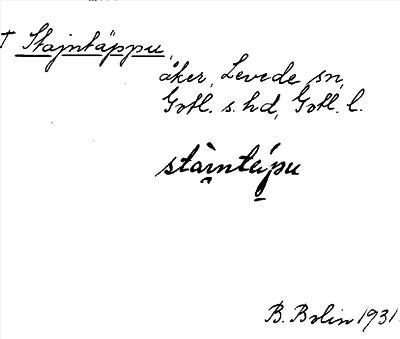 † Stajntäppu,
åker, Levede sn,
Gotl. s. hd, Gotl. l.
stàrntápu
B. Bolin 1931.